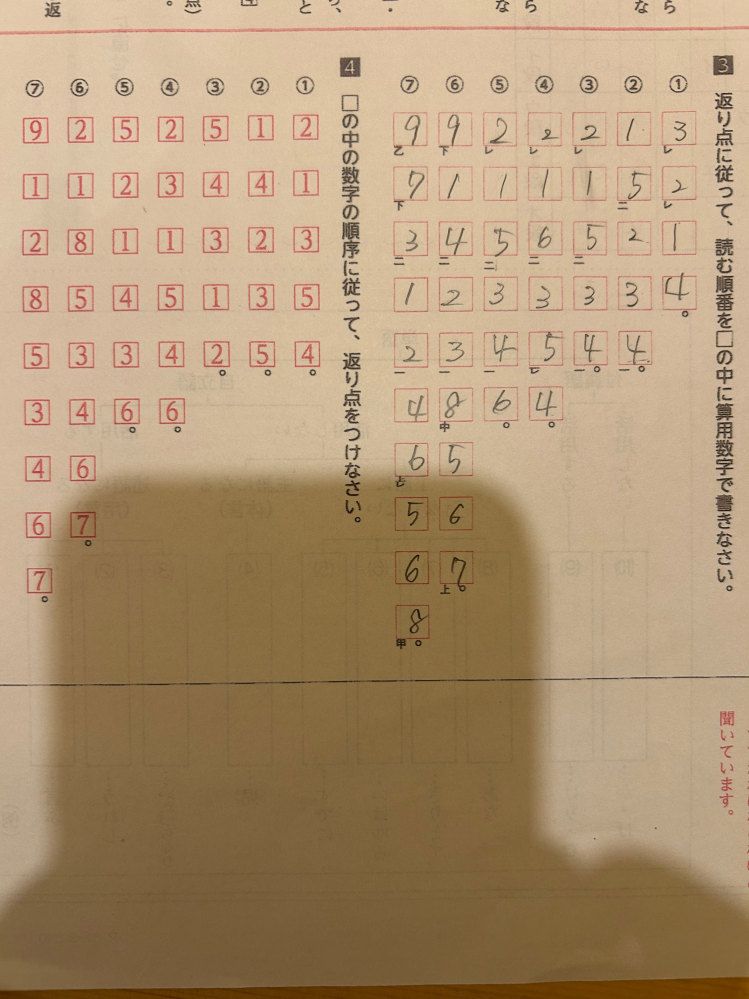 3 返り点に従って、読む順番を□の中に算用数字で書きなさい。
① 3レ 2レ 1 4。
② 1 5二 2 3 4一。
③ 2レ 1 5二 3 4一。
④ 2レ 1 6二 3 5 4。
⑤ 2レ 1 5二 3 4一 6。
⑥ 9下 1 4二 2 3一 8中 5 6 7上。
⑦ 9乙 7下 3二 1 2一 4 6 5 6 8甲。
4 □の中の数字の順序に従って、返り点をつけなさい。
① 2 1 3 5 4。
② 1 4 2 3 5。
③ 5 4 3 1 2。
④ 2 3 1 5 4 6。
⑤ 5 2 1 4 3 6。
⑥ 2 1 8 5 3 4 6 7。
⑦ 9 1 2 8 5 3 4 6 7。
聞いています。